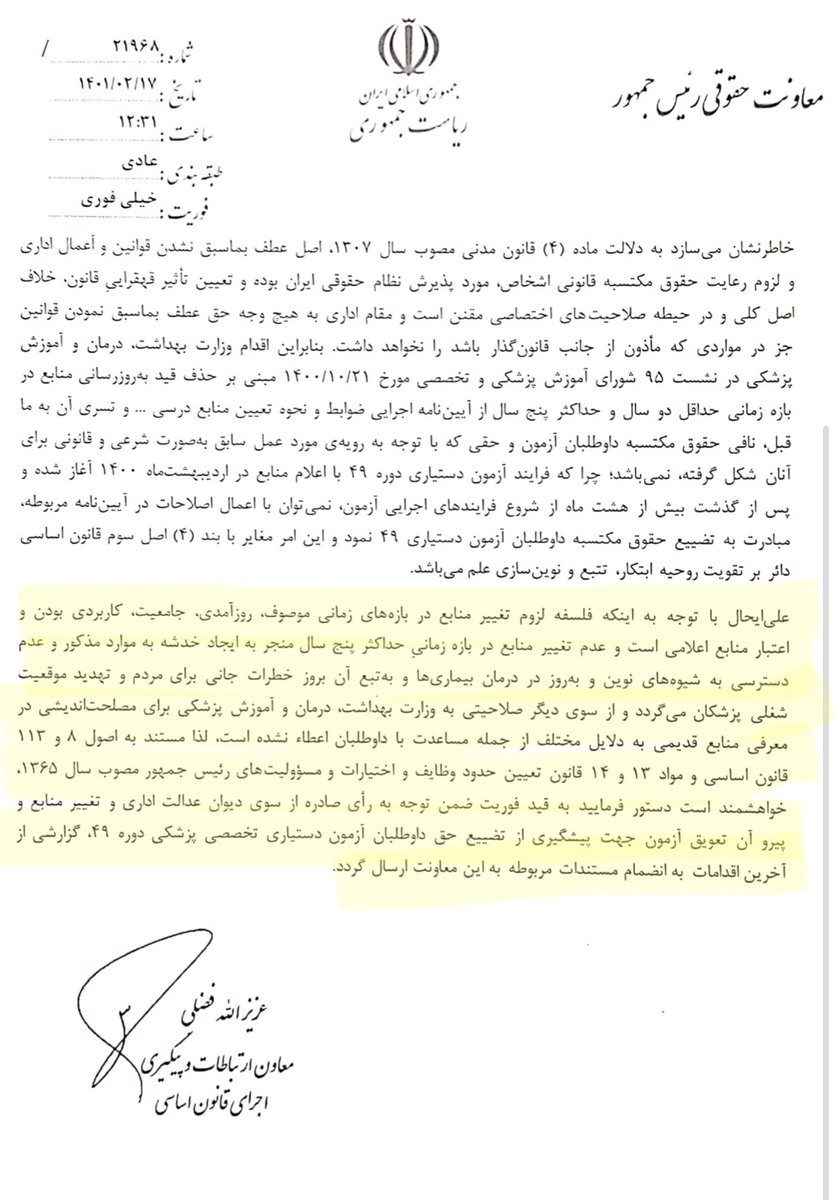 شماره : ۲۱۹۶۸ /
تاریخ : ۱۴۰۱/۰۲/۱۷
ساعت : ۱۲:۳۱
طبقه بندی : عادی
فوریت : خیلی فوری
جمهوری اسلامی ایران
ریاست جمهوری
معاونت حقوقی رئیس جمهور
خاطرنشان می‌سازد به دلالت ماده (۴) قانون مدنی مصوب سال ۱۳۰۷، اصل عطف بماسبق نشدن قوانین و أعمال اداری
و لزوم رعایت حقوق مکتسبه قانونی اشخاص، مورد پذیرش نظام حقوقی ایران بوده و تعیین تأثیر قهقراییِ قانون، خلاف
اصل کلی و در حیطه صلاحیت‌های اختصاصی مقنن است و مقام اداری به هیچ وجه حق عطف بماسبق نمودن قوانین
جز در مواردی که مأذون از جانب قانون‌گذار باشد را نخواهد داشت. بنابراین اقدام وزارت بهداشت، درمان و آموزش
پزشکی در نشست ۹۵ شورای آموزش پزشکی و تخصصی مورخ ۱۴۰۰/۱۰/۲۱ مبنی بر حذف قید به‌روزرسانی منابع در
بازه زمانی حداقل دو سال و حداکثر پنج سال از آیین‌نامه اجرایی ضوابط و نحوه تعیین منابع درسی ... و تسری آن به ما
قبل، نافی حقوق مکتسبه داوطلبان آزمون و حقی که با توجه به رویه‌ی مورد عمل سابق به‌صورت شرعی و قانونی برای
آنان شکل گرفته، نمی‌باشد؛ چرا که فرایند آزمون دستیاری دوره ۴۹ با اعلام منابع در اردیبهشت‌ماه ۱۴۰۰ آغاز شده و
پس از گذشت بیش از هشت ماه از شروع فرایندهای اجرایی آزمون، نمی‌توان با اعمال اصلاحات در آیین‌نامه مربوطه،
مبادرت به تضییع حقوق مکتسبه داوطلبان آزمون دستیاری ۴۹ نمود و این امر مغایر با بند (۴) اصل سوم قانون اساسی
دائر بر تقویت روحیه ابتکار، تتبع و نوین‌سازی علم می‌باشد.
علی‌ایحال با توجه به اینکه فلسفه لزوم تغییر منابع در بازه‌های زمانی موصوف، روزآمدی، جامعیت، کاربردی بودن و
اعتبار منابع اعلامی است و عدم تغییر منابع در بازه زمانیِ حداکثر پنج سال منجر به ایجاد خدشه به موارد مذکور و عدم
دسترسی به شیوه‌های نوین و به‌روز در درمان بیماری‌ها و به‌تبع آن بروز خطرات جانی برای مردم و تهدید موقعیت
شغلی پزشکان می‌گردد و از سوی دیگر صلاحیتی به وزارت بهداشت، درمان و آموزش پزشکی برای مصلحت‌اندیشی در
معرفی منابع قدیمی به دلایل مختلف از جمله مساعدت با داوطلبان اعطاء نشده است، لذا مستند به اصول ۸ و ۱۱۳
قانون اساسی و مواد ۱۳ و ۱۴ قانون تعیین حدود وظایف و اختیارات و مسؤولیت‌های رئیس جمهور مصوب سال ۱۳۶۵،
خواهشمند است دستور فرمایید به قید فوریت ضمن توجه به رأی صادره از سوی دیوان عدالت اداری و تغییر منابع و
پیرو آن تعویق آزمون جهت پیشگیری از تضییع حق داوطلبان آزمون دستیاری تخصصی پزشکی دوره ۴۹، گزارشی از
آخرین اقدامات به انضمام مستندات مربوطه به این معاونت ارسال گردد.
عزیز الله فضلی
معاون ارتباطات و پیگیری
اجرای قانون اساسی